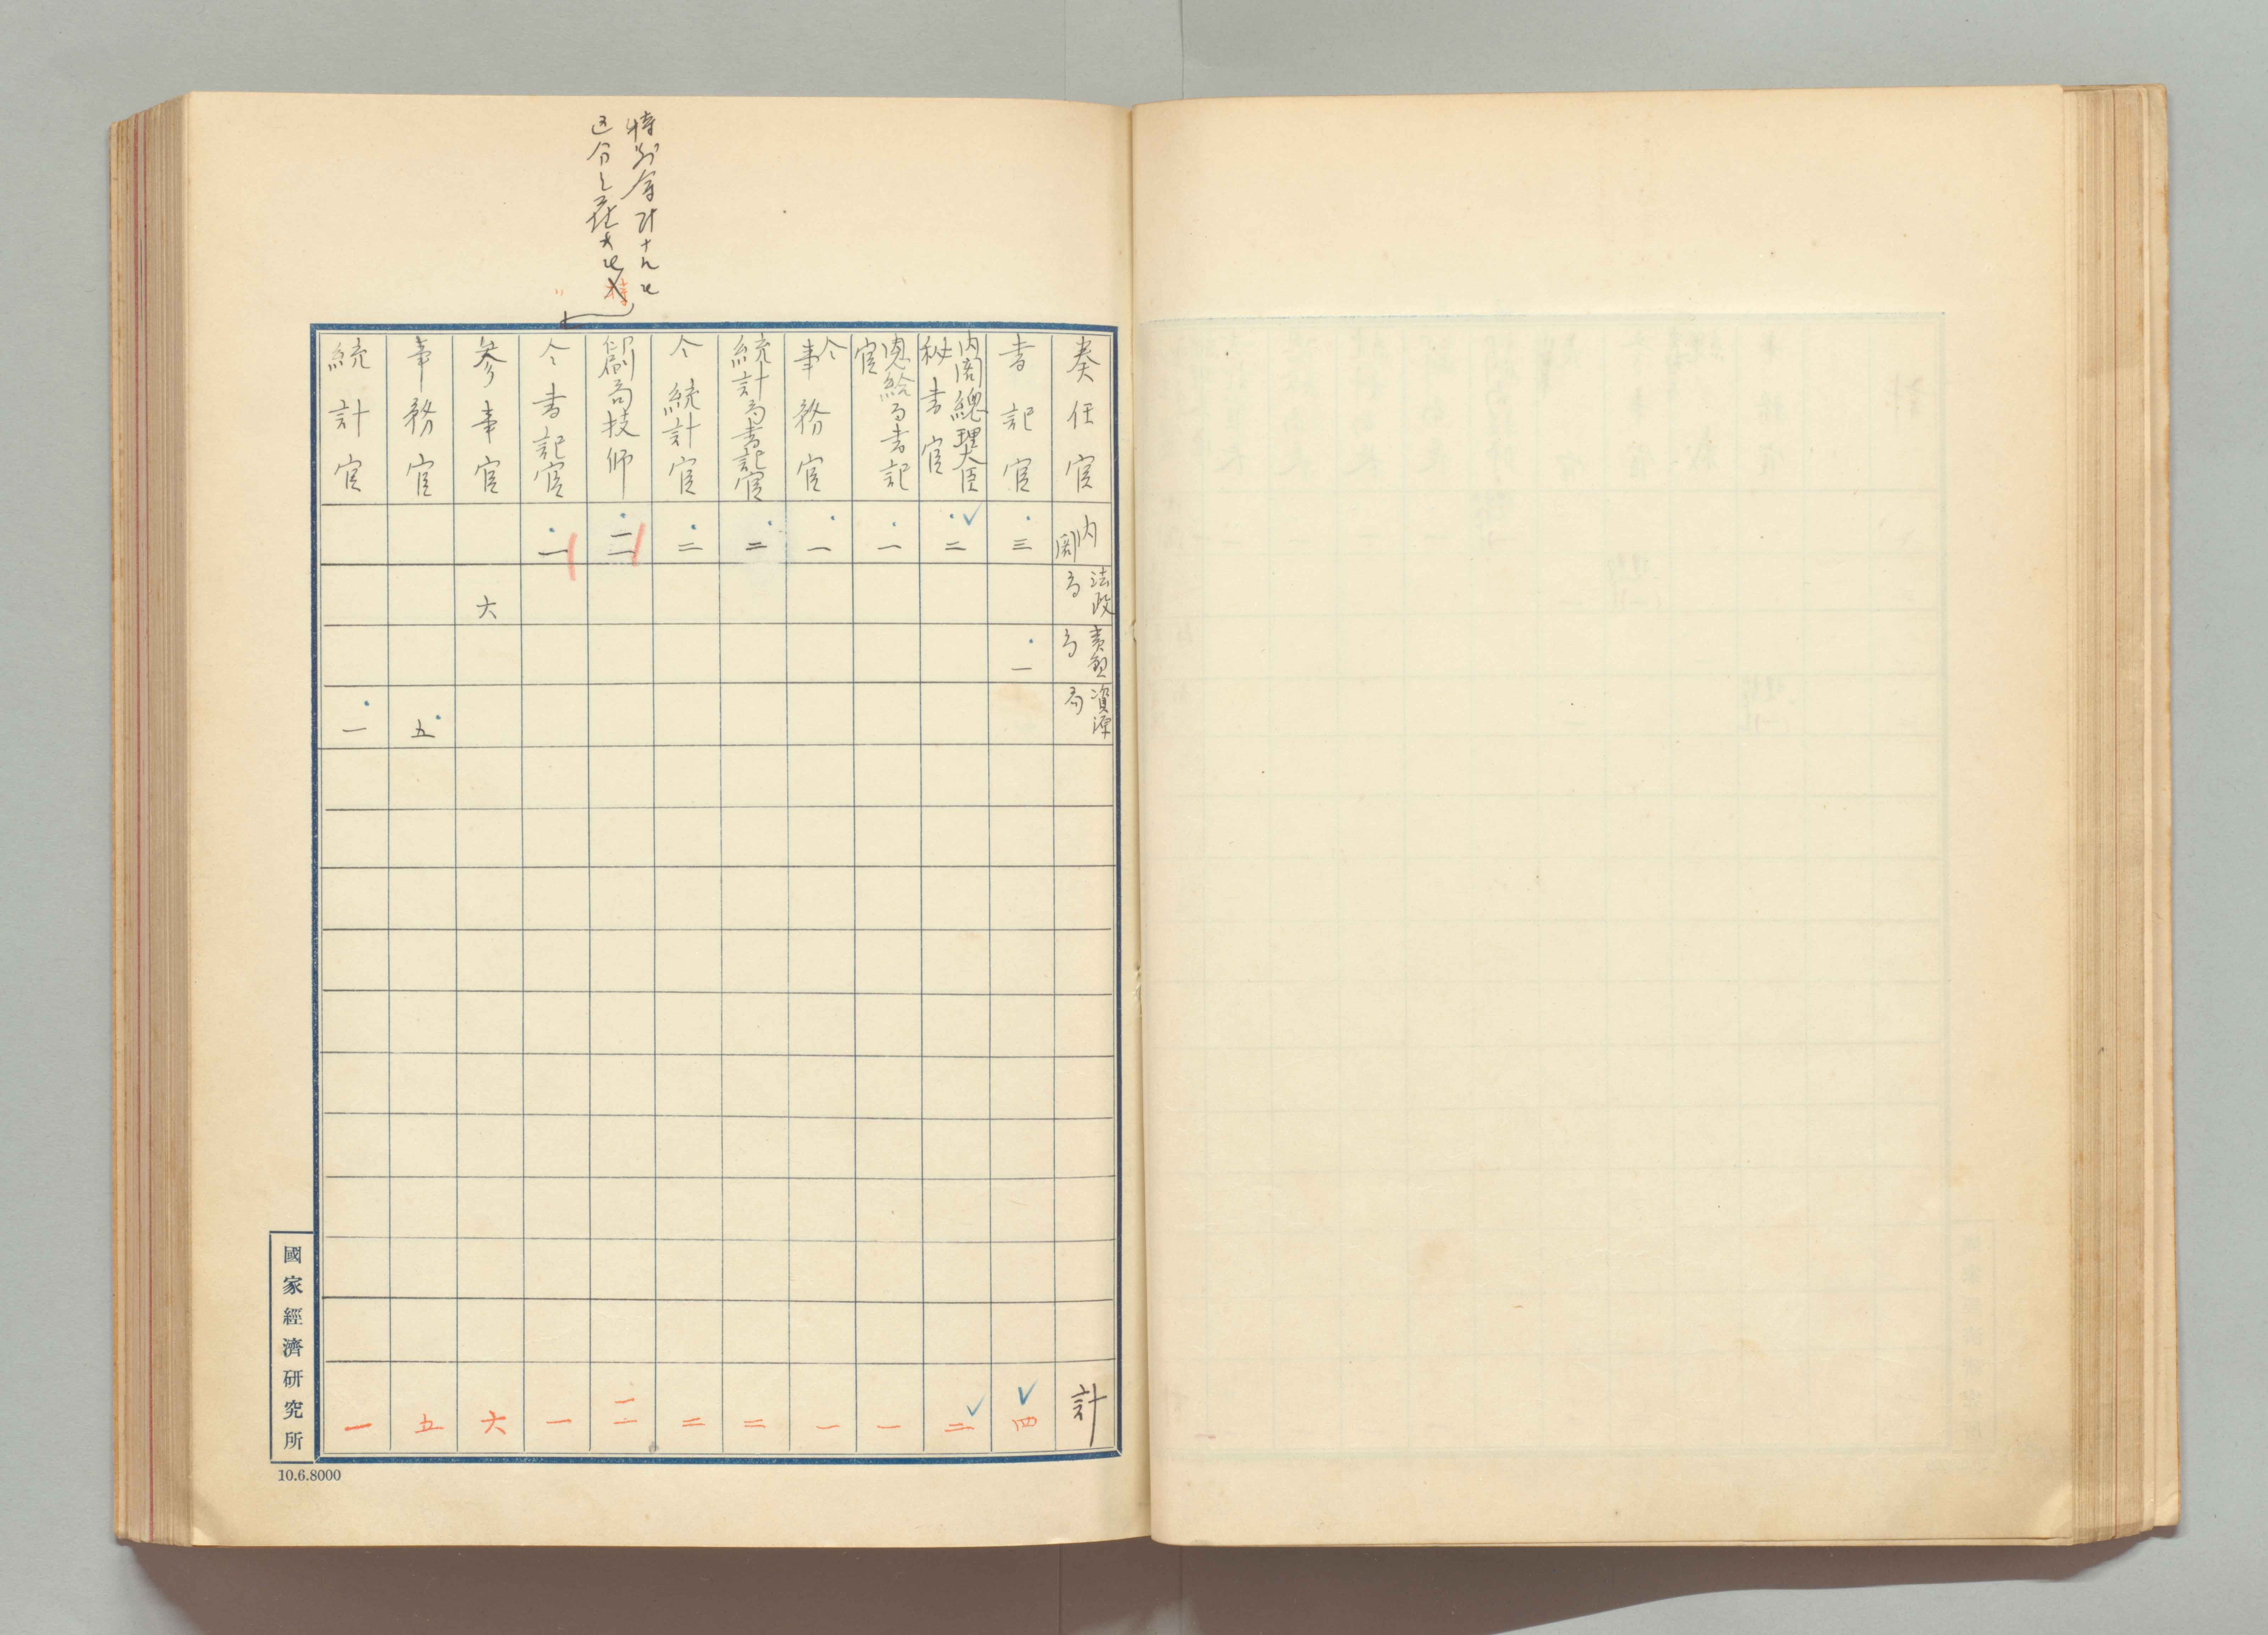 特別会計ナルモ
区分シ在ナモ
特
奏任官
内閣
法政局
賞勲局
資源局
計
書記官
三
一
四
内閣總理大臣秘書官
二
二
恩給局書記官
一
一
仝事務官
一
一
統計局書記官
二
二
仝統計官
二
二
印刷局技師
二
二
仝書記官
一
一
参事官
六
六
事務官
五
五
統計官
一
一
國家經濟研究所
10.6.8000